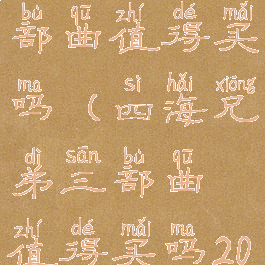 bù qǔ zhí dé mǎi
部曲值得买
ma sì hǎi xiōng
吗(四海兄
dì sān bù qǔ
弟三部曲
zhí dé mǎi ma
值得买吗20